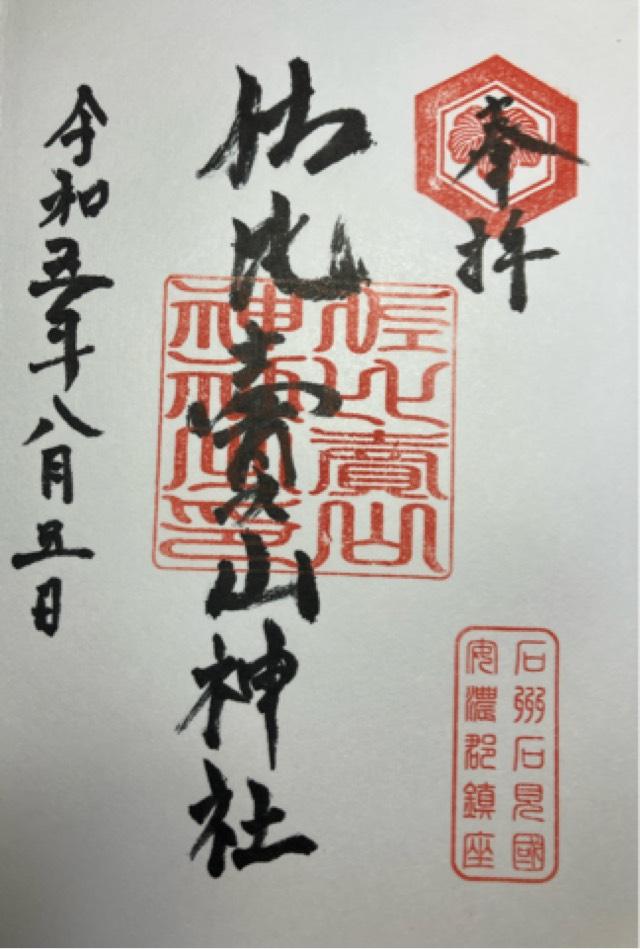 奉拝
佐比賣山神社
佐比賣山
神社之印
石州石見國
安濃郡鎮座
令和五年八月五日